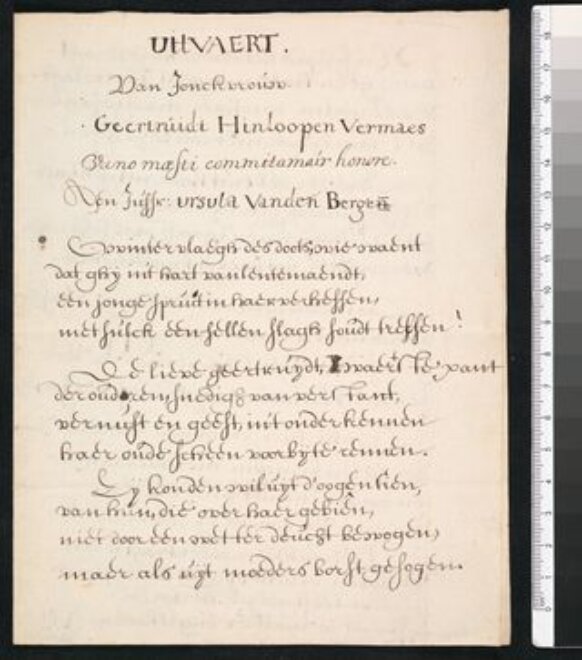 UYTVAERT.
Van Jonckvrouw
Geertruidt Hinloopen Vermaes
mæsti commitamur honore.
Aen Juffr: Ursula Vanden Bergen
O winter vlaegh des doots, wie waent
dat ghy in't hart van lentemaendt,
een jonge spruit in haer verheffen,
met sulck een fellen slagh soudt treffen!
De lieve geertruydt, 't waerste pant
der ouderen, snedigh van verstant,
vernuft en geest, in't onderkennen
haer oude scheen voorby te rennen.
Sy konden wil uyt d'oogen sien,
van hun, die over haer gebien,
niet door een wet ter deucht bewogen,
maer als uyt moeders borst gesogen.